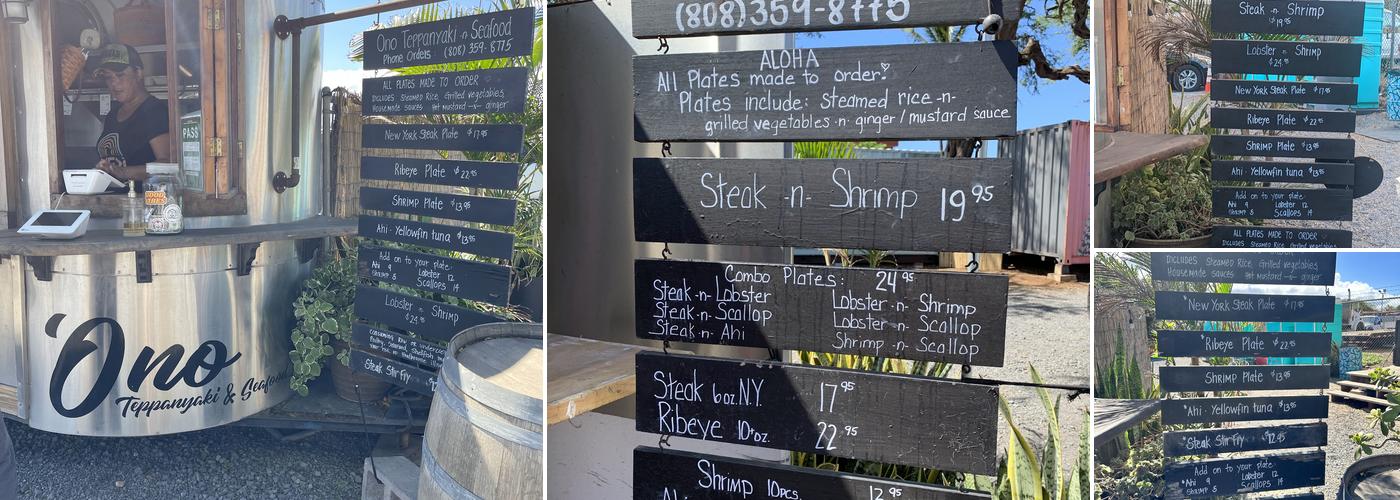 Ono Teppanyaki n Seafood
Phone Orders: (808) 359-8775
ALL PLATES MADE TO ORDER
INCLUDES STEAMED RICE, Grilled vegetables,
HOUSEMADE SAUCES Hot mustard -n- ginger
New York Steak Plate $17.95
Ribeye Plate $22.95
SHRIMP Plate $13.95
Ahi - Yellowfin tuna $13.95
Add on to your plate
Ahi 9 Lobster 12
Shrimp 8 Scallops 14
Lobster n Shrimp
$24.95
Steak Stir Fry
PASS
'Ono
Teppanyaki & Seafood
(808)359-8775
ALOHA
All Plates made to order!
Plates include: Steamed rice -n-
grilled vegetables -n- ginger/mustard sauce
Steak -n- Shrimp 19 95
Combo Plates: 24 95
Steak -n- Lobster Lobster -n- Shrimp
Steak -n- Scallop Lobster -n- Scallop
Steak -n- Ahi Shrimp -n- Scallop
Steak 6oz. N.Y. 17 95
Ribeye 10+oz. 22 95
Shrimp 10pcs. 12 95
Ahi
Steak n Shrimp
$19.95
Lobster n Shrimp
$24.95
New York Steak Plate $17.95
Ribeye Plate $22.95
SHRIMP Plate $13.95
Ahi - Yellowfin tuna $13.95
Add on to your plate
Ahi 9 Lobster 12
Shrimp 8 Scallops 14
ALL PLATES MADE TO ORDER
INCLUDES STEAMED RICE, Grilled vegetables
INCLUDES STEAMED RICE, Grilled vegetables,
HOUSEMADE SAUCES Hot mustard -n- ginger
*New York Steak Plate $17.95
*Ribeye Plate $22.95
SHRIMP Plate $13.95
*Ahi - Yellowfin tuna $13.95
*Steak Stir Fry $12.95
Add on to your plate
*Ahi 9 Lobster 12
Shrimp 8 Scallops 14